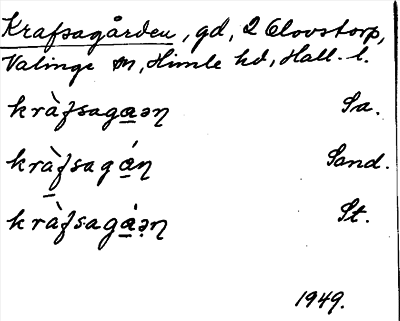 Krafsagården, gd, 2 Olovstorp,
Valinge sn, Himle hd, Hall. l.
kràfsaga̲əɳ Sa.
krà̲fsagá̲ɳ Sand.
kràfsagá̲ə̣ɳ St.
1949.